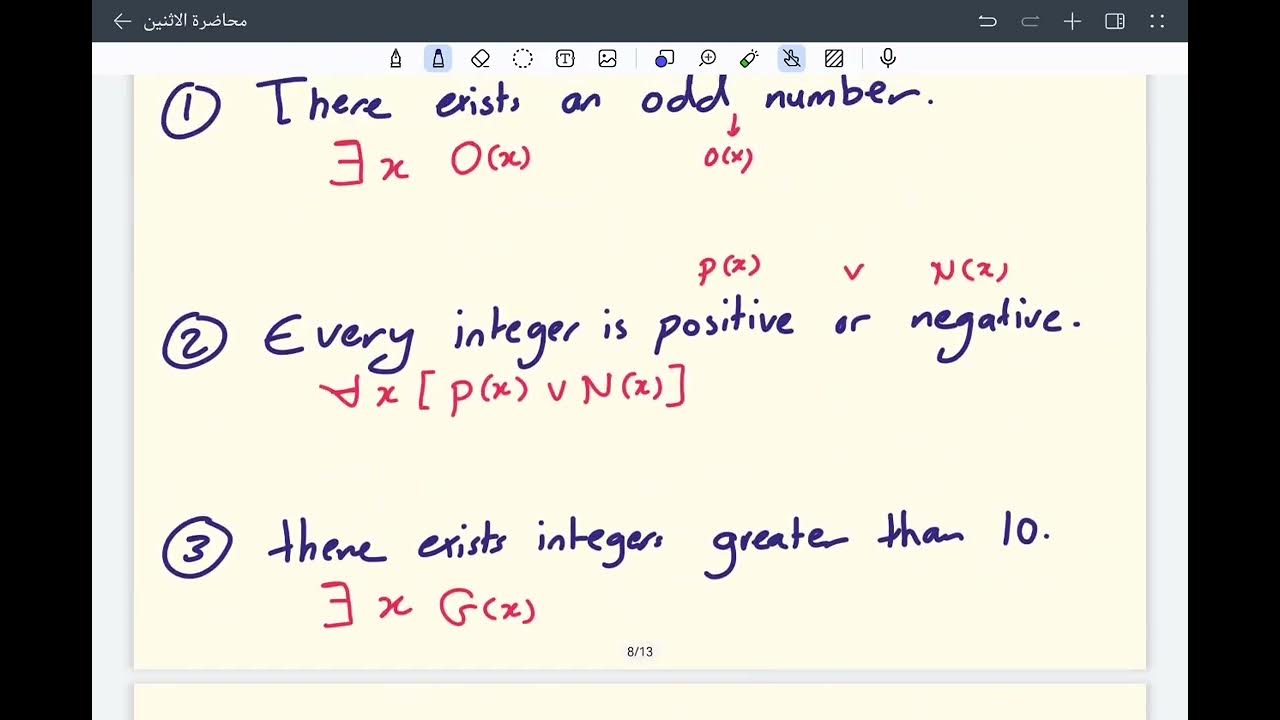 محاضرة الاثنين
① There exists an odd number.
∃x O(x)
O(x)
P(x) ∨ N(x)
② Every integer is positive or negative.
∀x [P(x) ∨ N(x)]
③ there exists integers greater than 10.
∃x G(x)
8/13